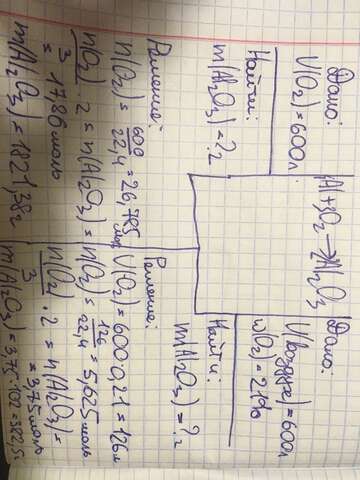 Дано:
V(O₂) = 600л
Найти:
m(Al₂O₃) = ? г
Решение:
n(O₂) = 600/22,4 = 26,785 моль
n(O₂)/3 · 2 = n(Al₂O₃) =
= 17,86 моль
m(Al₂O₃) = 1821,38 г
Al + 3O₂ → Al₂O₃
Дано:
V(воздуха) = 600л
w(O₂) = 21%
Найти:
m(Al₂O₃) = ? г
Решение:
V(O₂) = 600·0,21 = 126 л
n(O₂) = 126/22,4 = 5,625 моль
n(O₂)/3 · 2 = n(Al₂O₃) =
= 3,75 моль
m(Al₂O₃) = 3,75 · 102 = 382,5